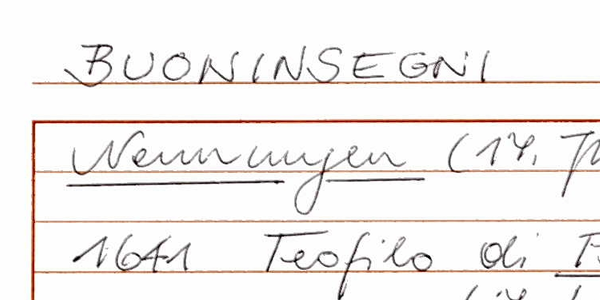 BUONINSEGNI
Nennungen (17.
1641 Teofilo di